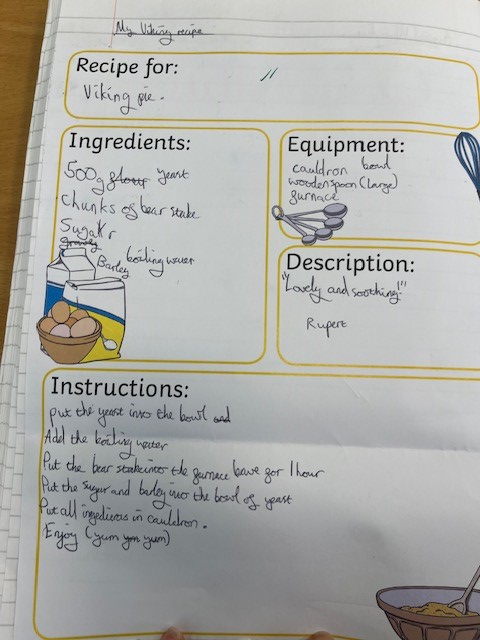 My Viking recipe
Recipe for:
Viking pie.
Ingredients:
500g flour yeast
chunks of bear stake
Sugar
Barley
boiling water
Equipment:
cauldron bowl
wooden spoon (large)
furnace
Description:
"Lovely and soothing!"
Rupert
Instructions:
put the yeast into the bowl and
Add the boiling water
Put the bear stake into the furnace leave for 1 hour
Put the sugar and barley into the bowl of yeast
Put all ingredients in cauldron.
Enjoy (yum yum yum)